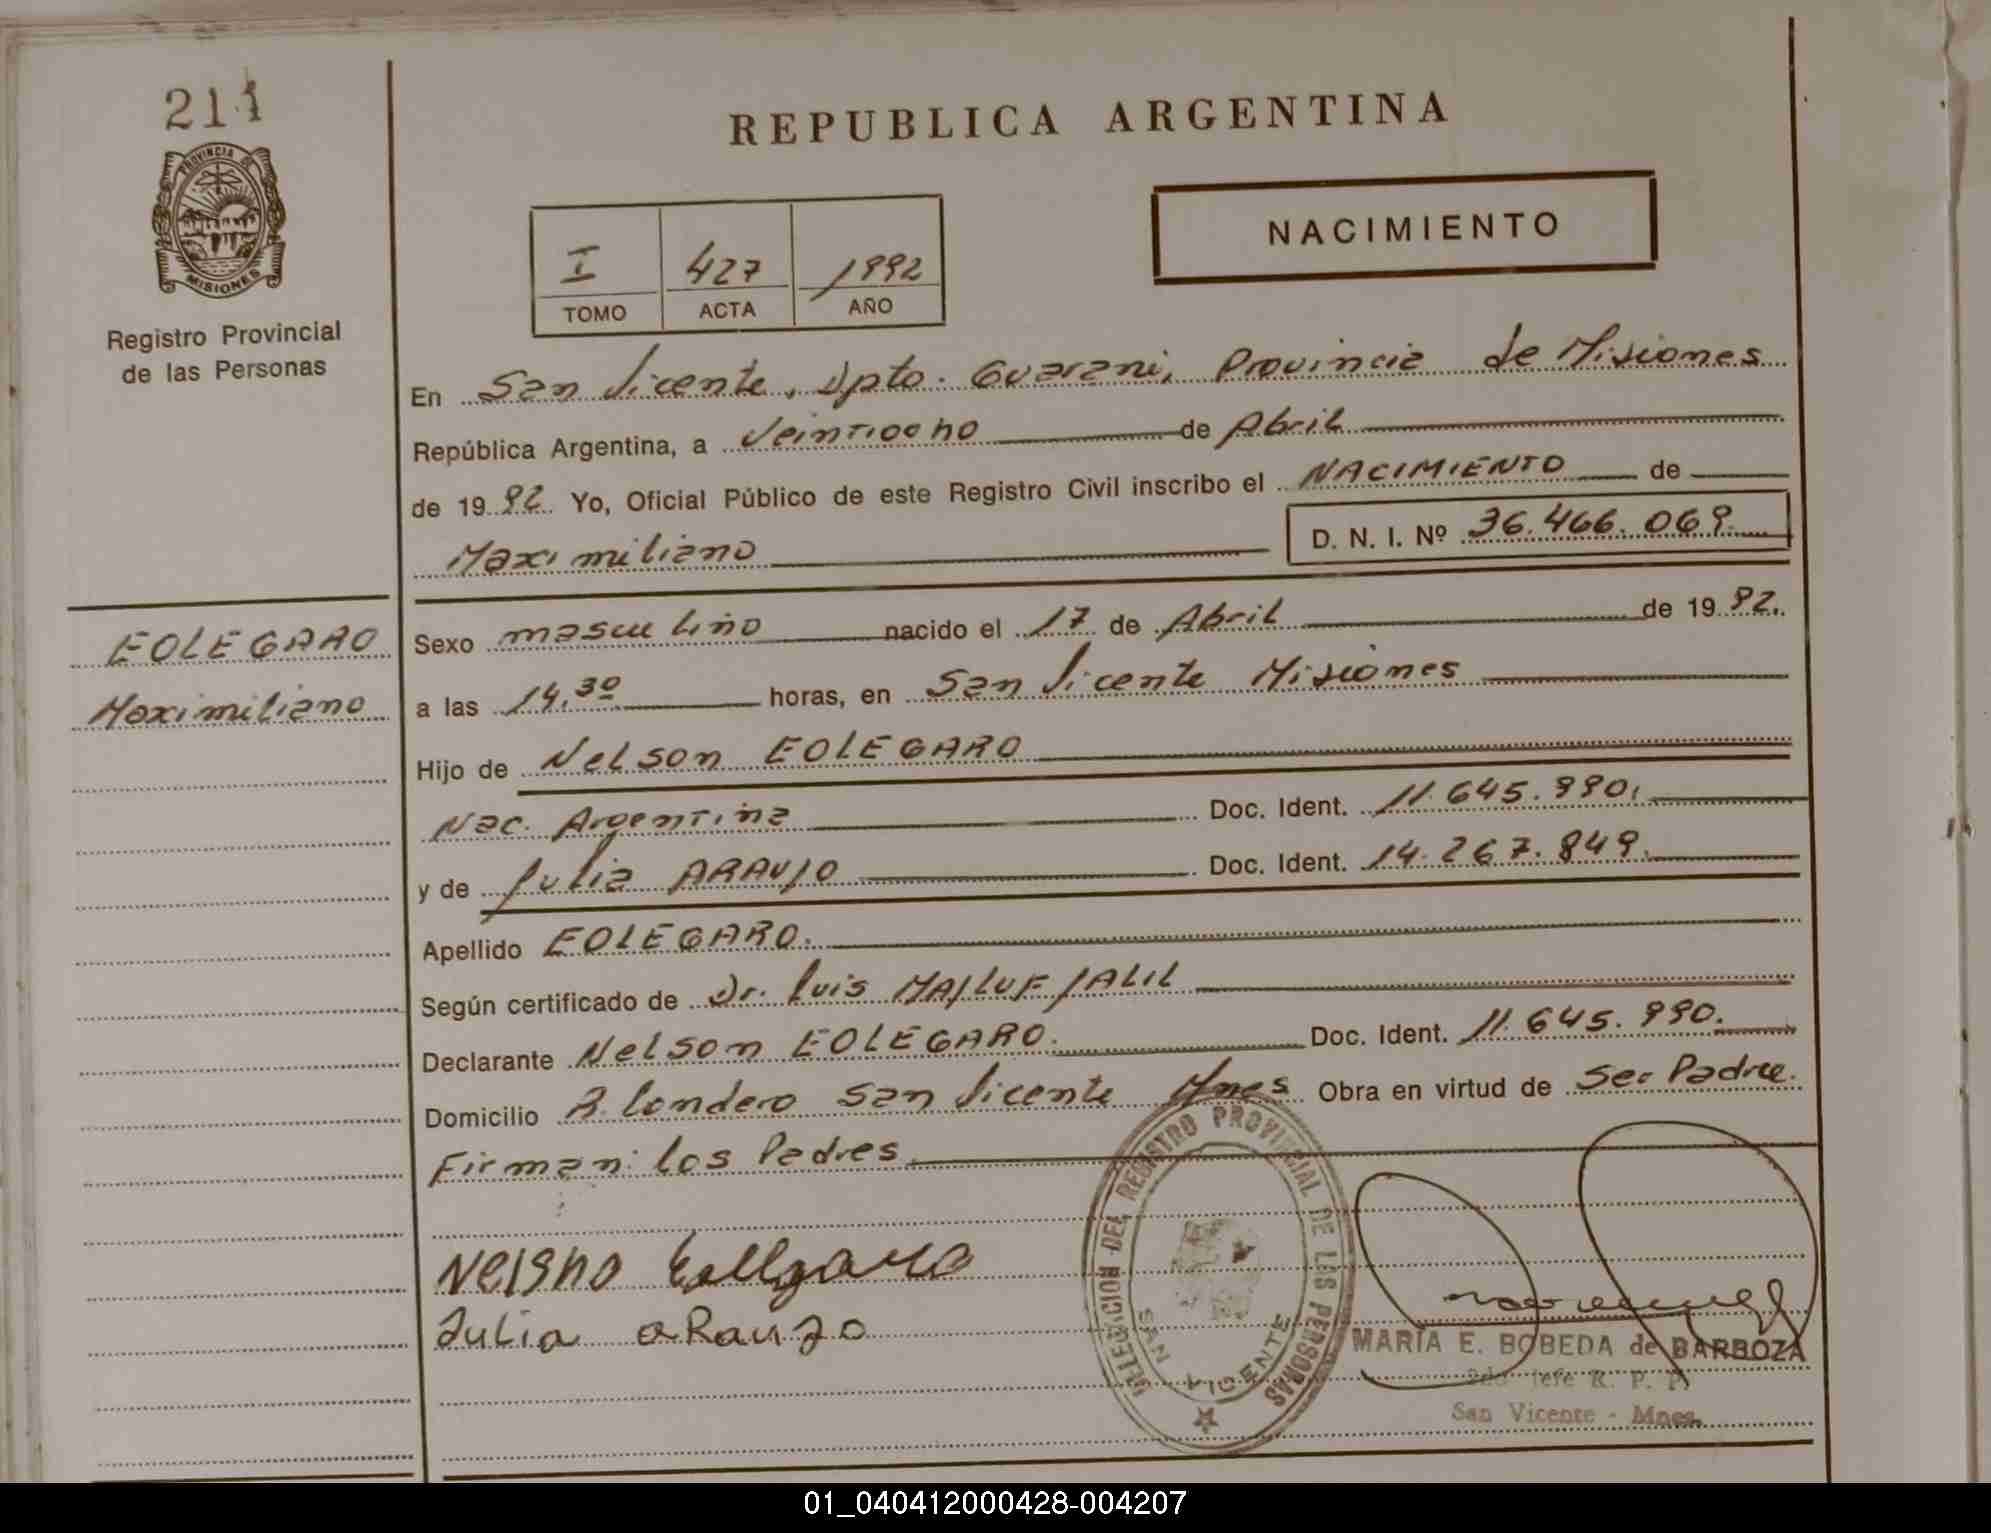 211
PROVINCIA DE
MISIONES
Registro Provincial
de las Personas
REPUBLICA ARGENTINA
NACIMIENTO
I 427 1992
TOMO ACTA AÑO
En San Vicente, Dpto. Guarani, Provincia de Misiones
República Argentina, a Veintiocho de Abril
de 1992 Yo, Oficial Público de este Registro Civil inscribo el NACIMIENTO de
Maximiliano D. N. I. Nº 36.466.069.
EOLEGARO
Maximiliano
Sexo masculino nacido el 17 de Abril de 1992.
a las 14,30 horas, en San Vicente Misiones
Hijo de Nelson EOLEGARO
Nac. Argentina Doc. Ident. 11.645.990.
y de Julia ARAUJO Doc. Ident. 14.267.849.
Apellido EOLEGARO.
Según certificado de Dr. Luis MAJLUF JALIL
Declarante Nelson EOLEGARO. Doc. Ident. 11.645.990.
Domicilio B. Londero San Vicente Mnes Obra en virtud de Ser Padre.
Firman: los Padres
Nelsno
Julia aRauJo
DELEGACION DEL REGISTRO PROVINCIAL DE LAS PERSONAS
SAN VICENTE
MARIA E. BOBEDA de BARBOZA
2do. Jefe R. P. P.
San Vicente - Mnes.
01_040412000428-004207